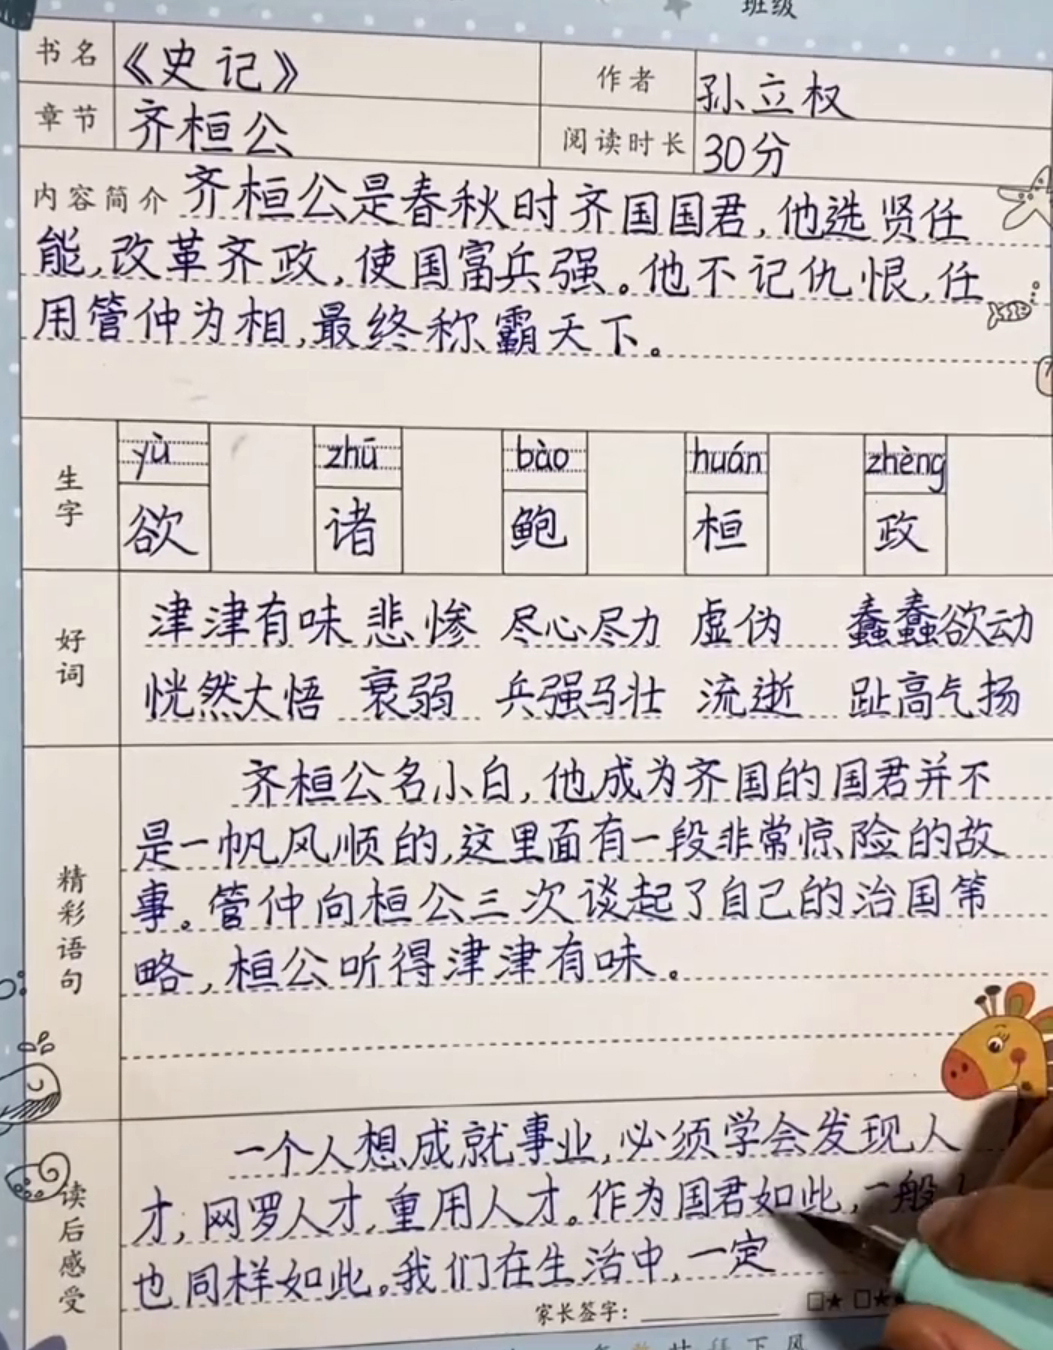 班级
书名 《史记》 作者 孙立权
章节 齐桓公 阅读时长 30分
内容简介 齐桓公是春秋时齐国国君,他选贤任
能,改革齐政,使国富兵强。他不记仇恨,任
用管仲为相,最终称霸天下。
yù zhū bào huán zhèng
生字 欲 诸 鲍 桓 政
好词 津津有味 悲惨 尽心尽力 虚伪 蠢蠢欲动
恍然大悟 衰弱 兵强马壮 流逝 趾高气扬
精彩语句 齐桓公名小白,他成为齐国的国君并不
是一帆风顺的,这里面有一段非常惊险的故
事。管仲向桓公三次谈起了自己的治国策
略,桓公听得津津有味。
读后感受 一个人想成就事业,必须学会发现人
才,网罗人才,重用人才。作为国君如此,一般人
也同样如此。我们在生活中,一定
家长签字: